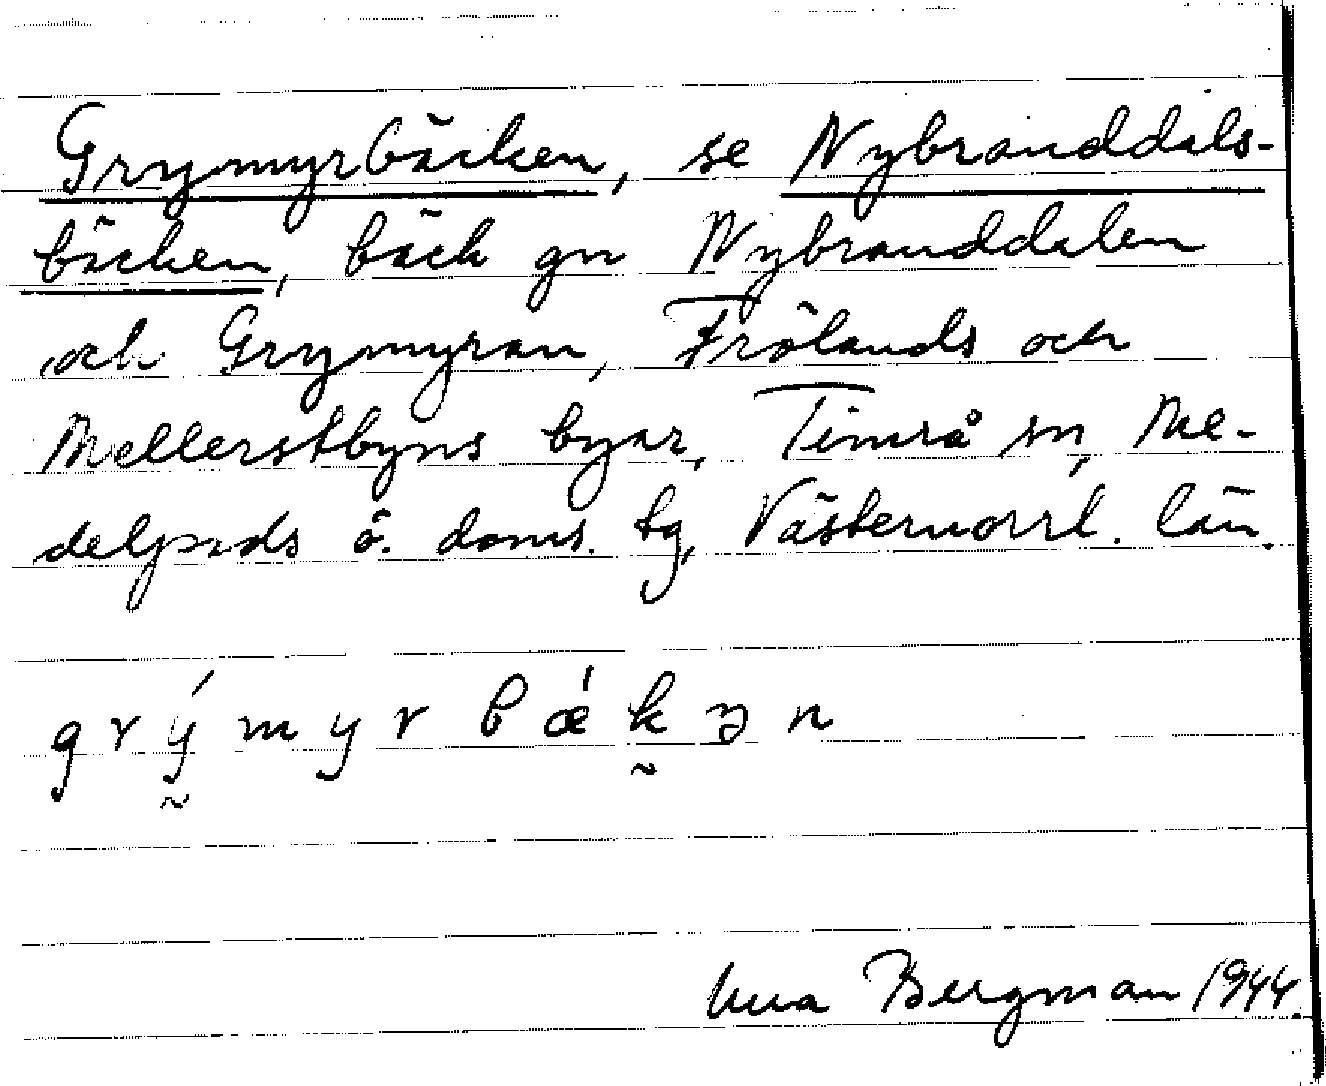 Grymyrbäcken, se Nybranddals-
bäcken, bäck gm Nybranddalen
och Grymyran, Frölands och
Mellerstbyns byar, Timrå sn, Me-
delpads ö. doms. tg, Västernorrl. län.
grý̰myrbǽk̰ən
Bergman 1944.